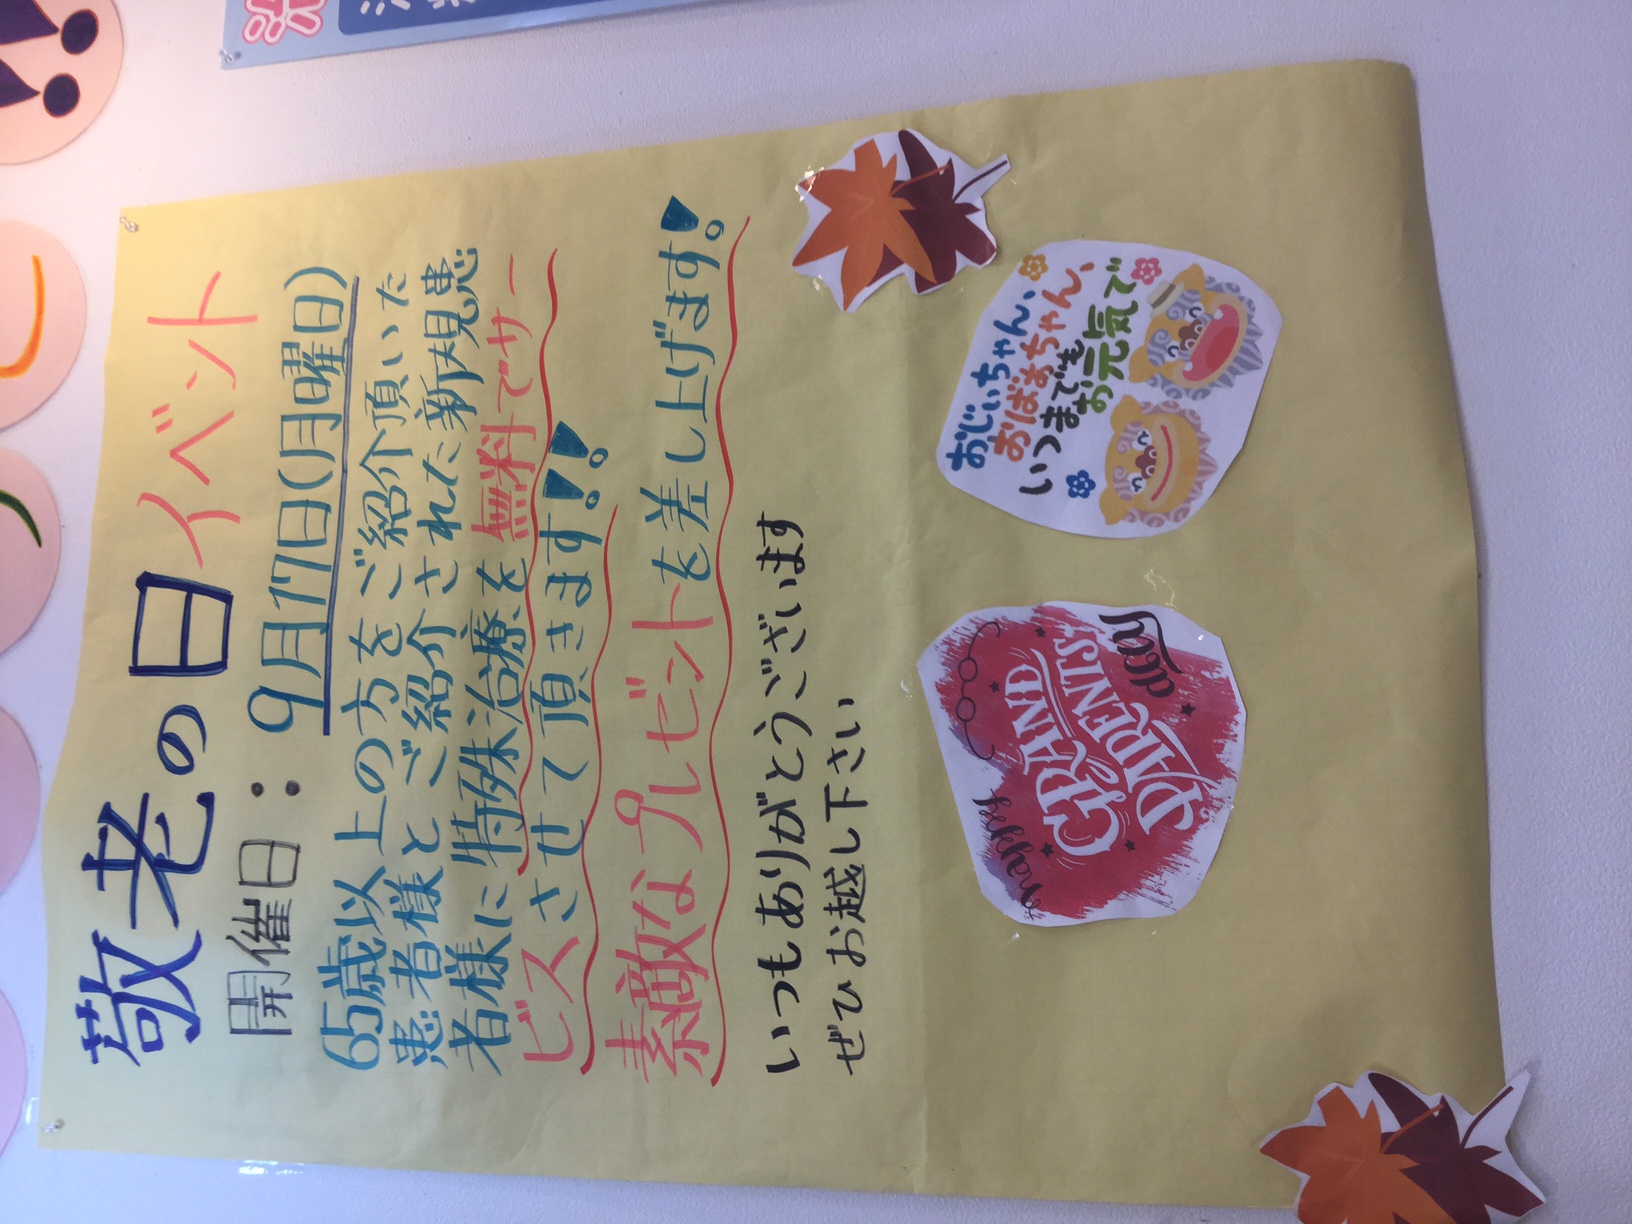 敬老の日イベント
開催日：9月17日(月曜日)
65歳以上の方をご紹介頂いた
患者様とご紹介された新規患
者様に特殊治療を無料でサー
ビスさせて頂きます!!
素敵なプレゼントを差し上げます!
いつもありがとうございます
ぜひお越し下さい
happy
GRAND
PARENTS'
day
おじぃちゃん、
おばぁちゃん、
いつまでも
お元気で